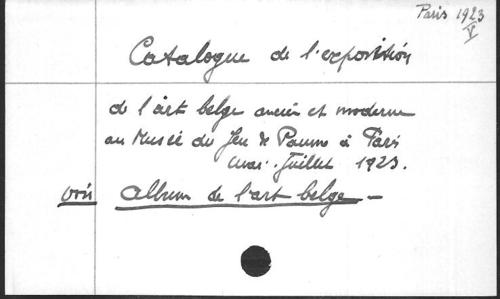 Paris 1923
V
Catalogue de l'exposition
de l'art belge ancien et moderne
au Musée du Jeu de Paume à Paris
mai-Juillet 1923.
voir album de l'art belge -